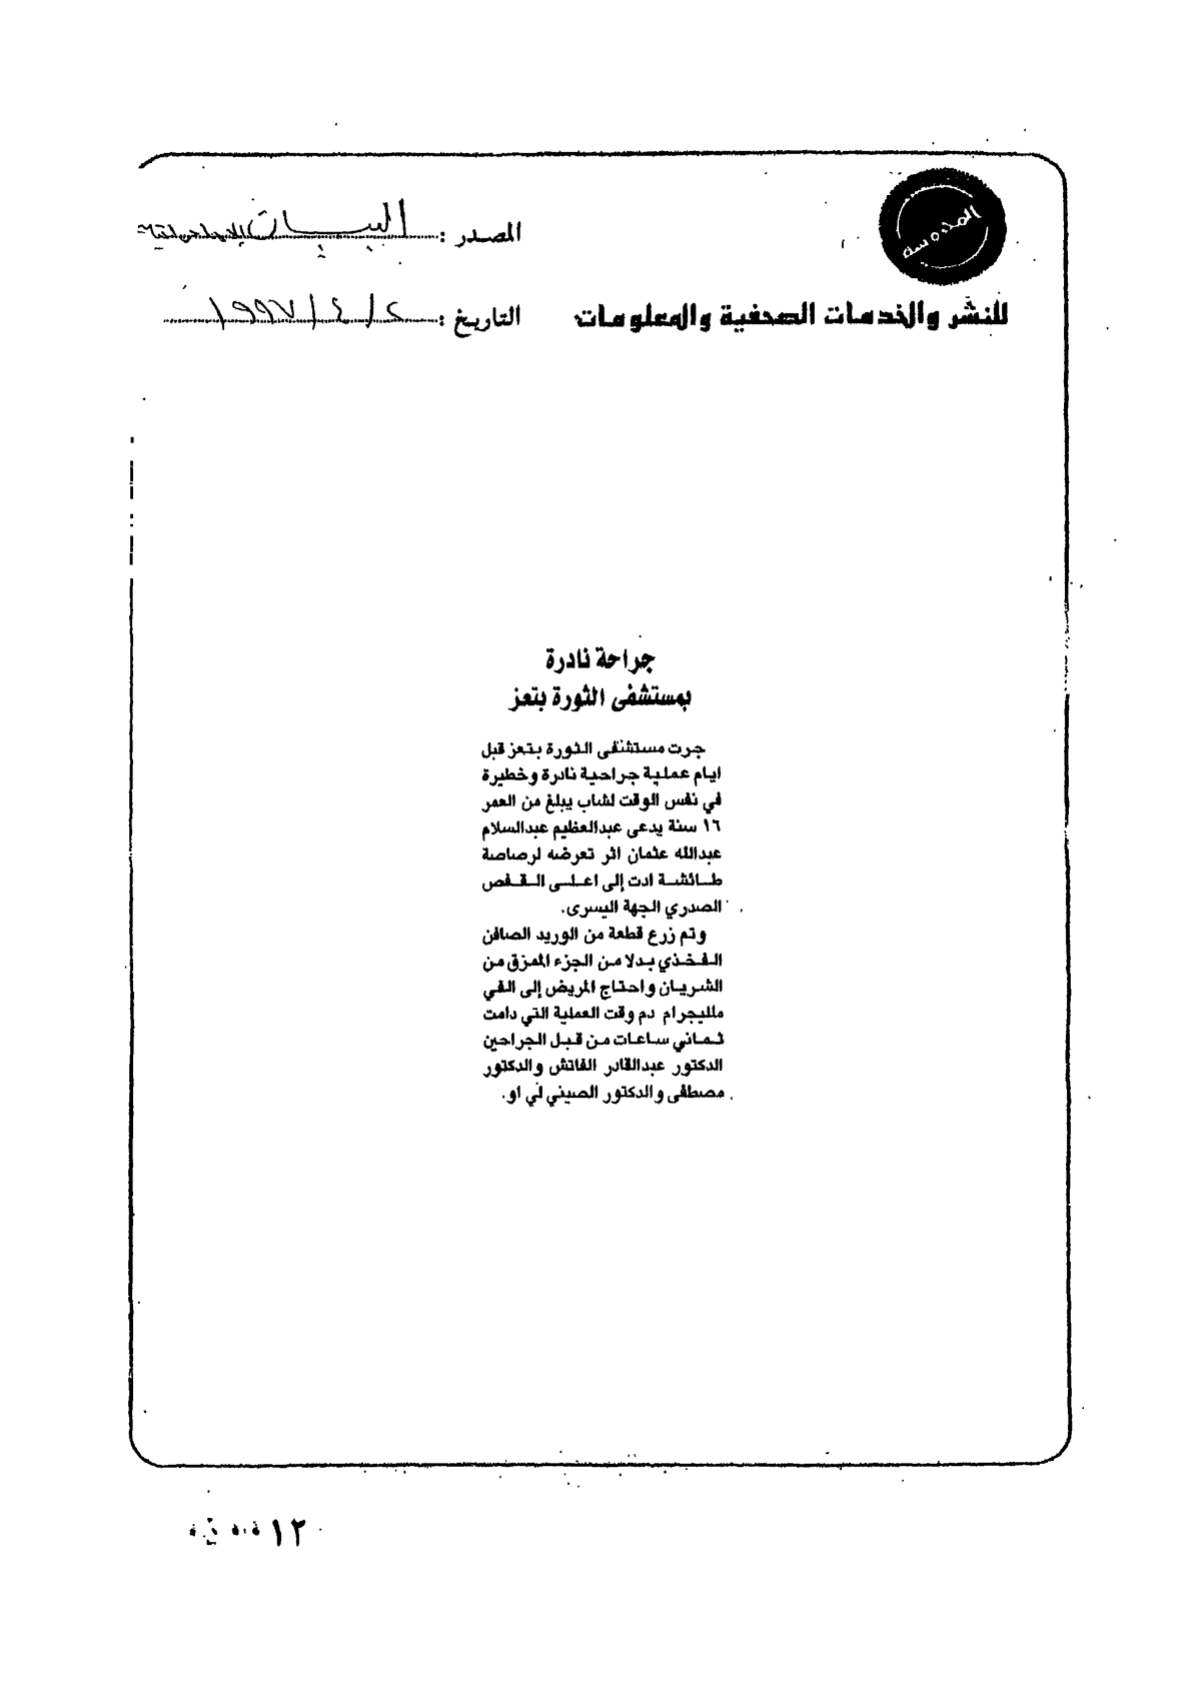 المحروسة
المصدر : البيان الإماراتية
للنشر والخدمات الصحفية والمعلومات
التاريخ : ٢ / ٤ / ١٩٩٧
جراحة نادرة
بمستشفى الثورة بتعز
جرت مستشفى الثورة بتعز قبل
ايام عملية جراحية نادرة وخطيرة
في نفس الوقت لشاب يبلغ من العمر
١٦ سنة يدعى عبدالعظيم عبدالسلام
عبدالله عثمان اثر تعرضه لرصاصة
طائشة ادت إلى اعلى القفص
الصدري الجهة اليسرى.
وتم زرع قطعة من الوريد الصافن
الفخذي بدلا من الجزء الممزق من
الشريان واحتاج المريض إلى الفي
ملليجرام دم وقت العملية التي دامت
ثماني ساعات من قبل الجراحين
الدكتور عبدالقادر الفاتش والدكتور
مصطفى والدكتور الصيني لي او.
١٢